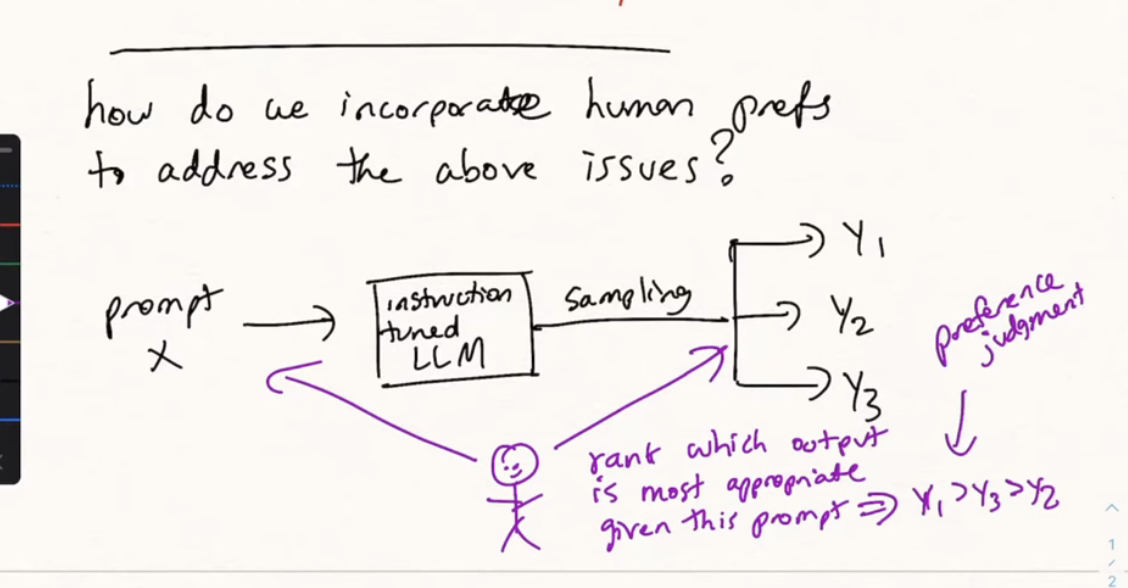 how do we incorporate human prefs
to address the above issues?
prompt
X
instruction
tuned
LLM
sampling
Y1
Y2
Y3
preference
judgment
rank which output
is most appropriate
given this prompt ⇒ Y1 > Y3 > Y2
1
/
2